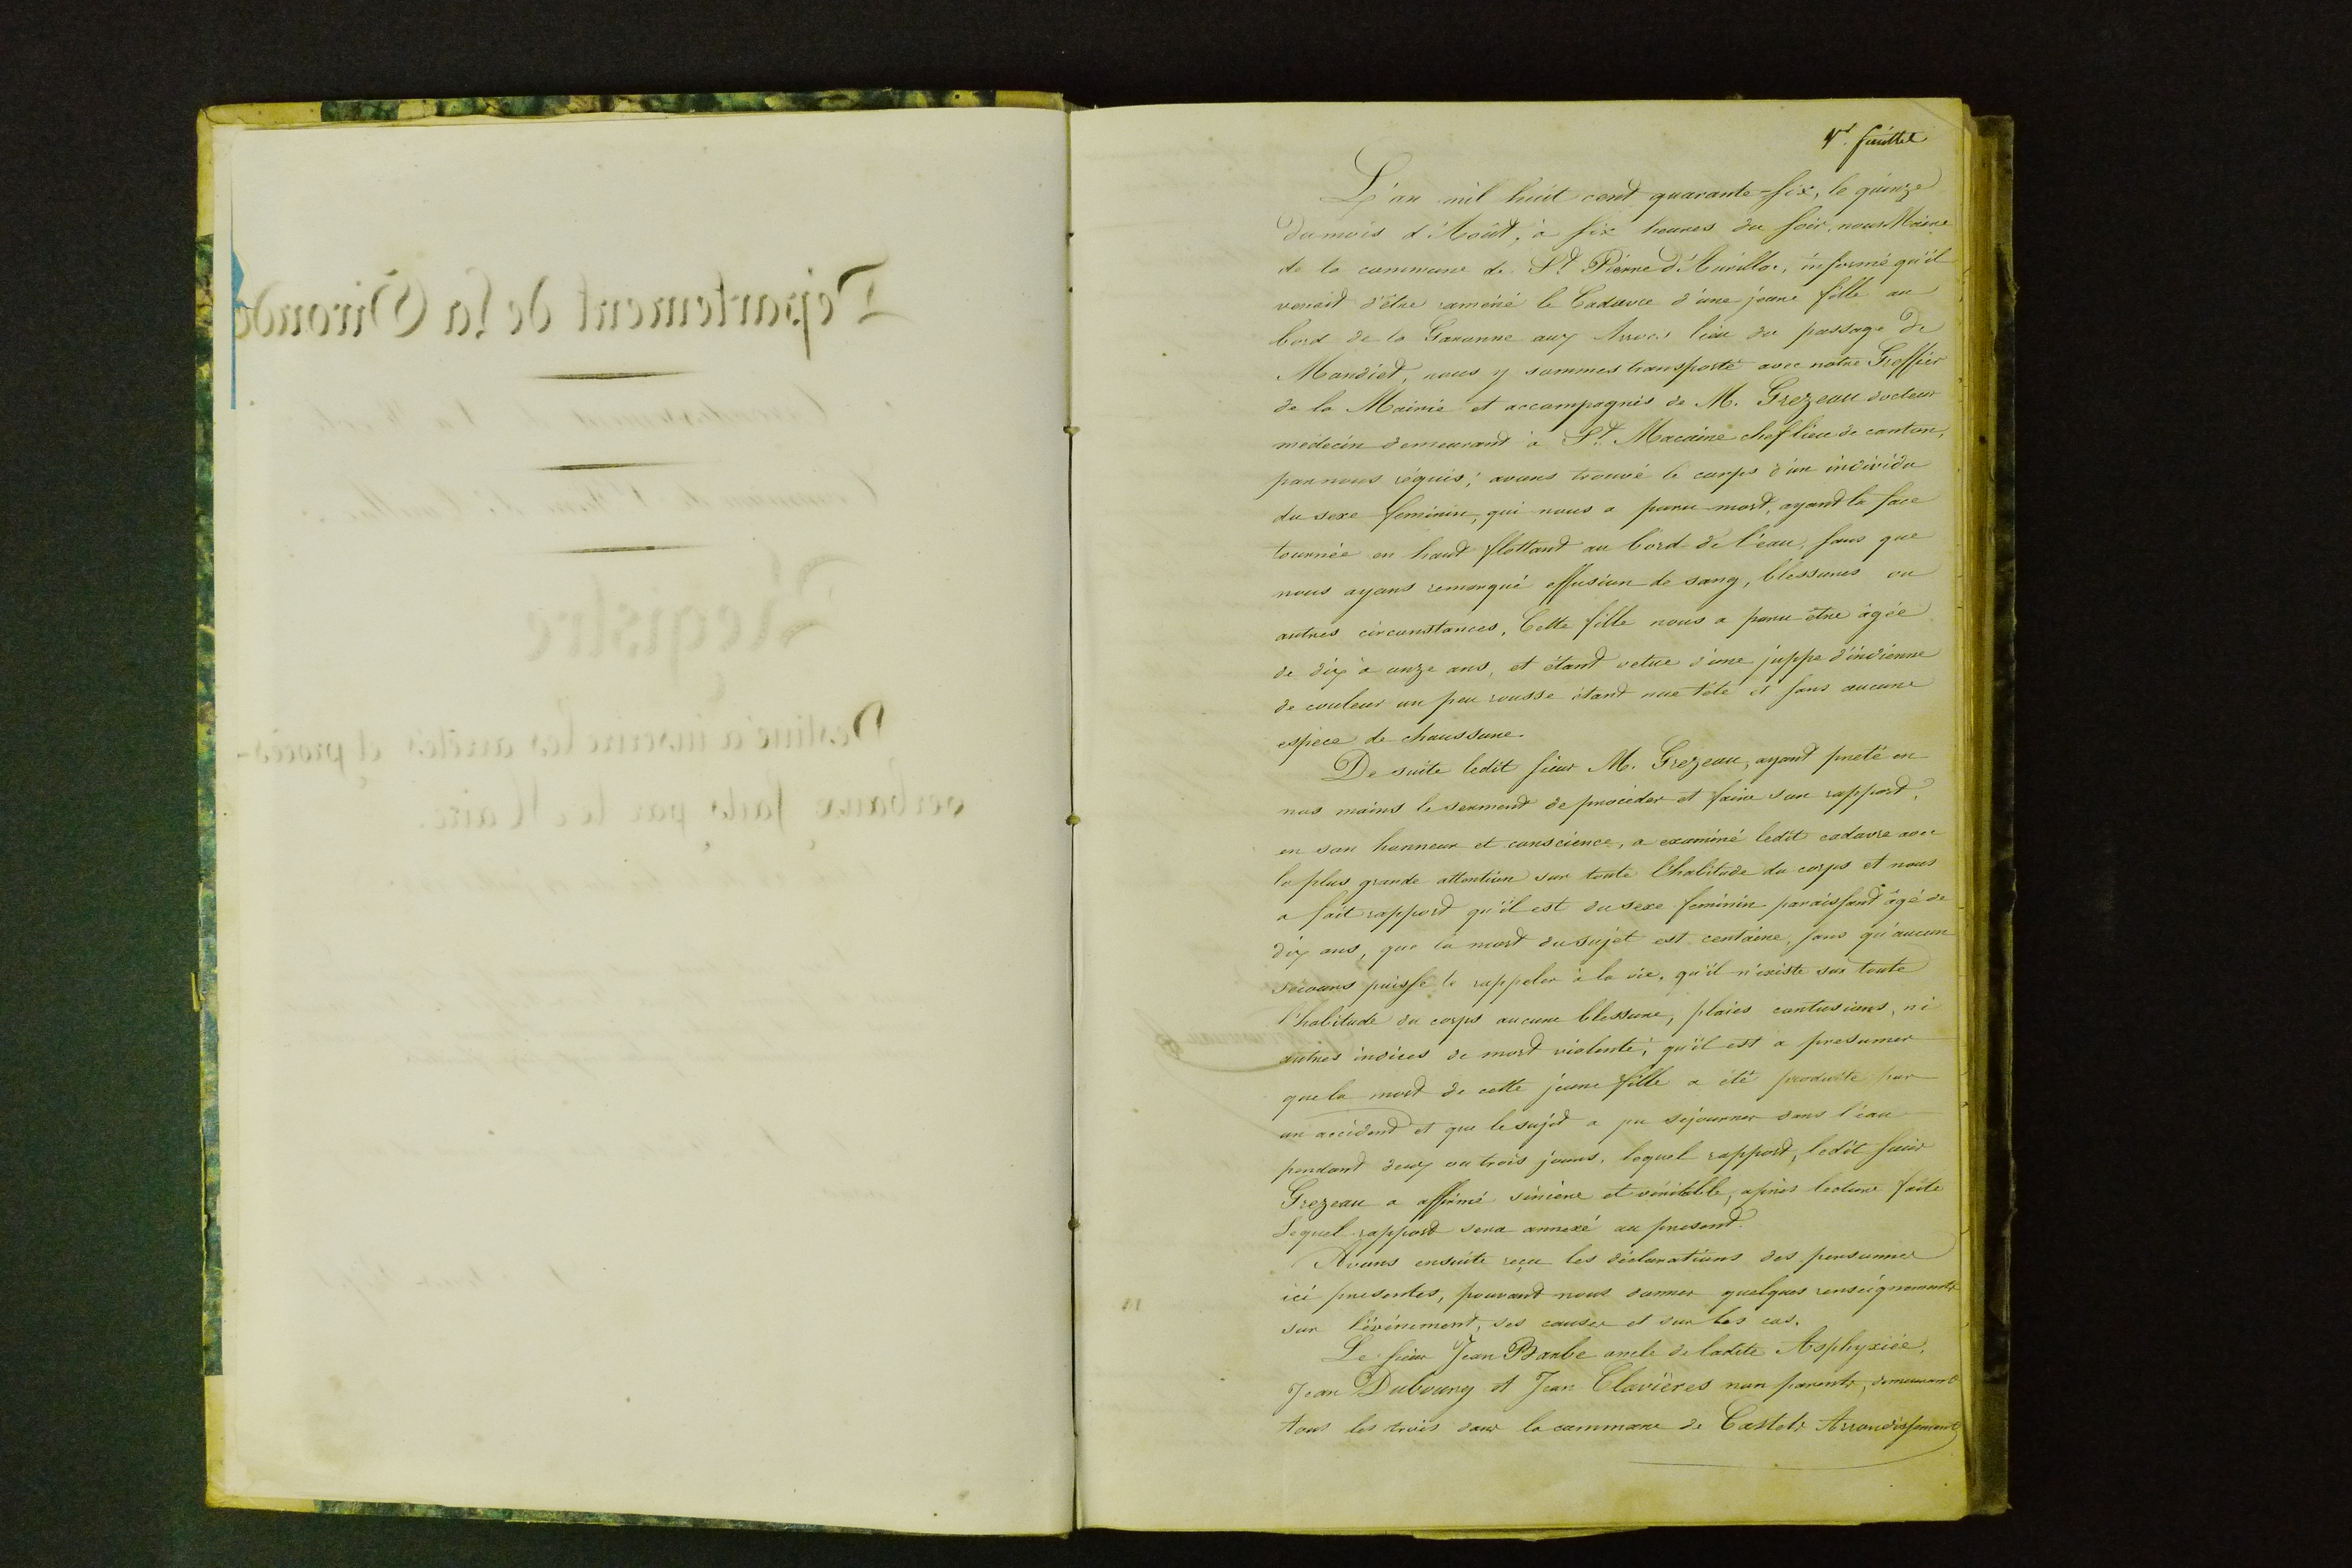 1er. feuillet
L'an mil huit cent quarante-six, le quinze
du mois d'Août, à six heures du soir, nous Maire
de la commune de St. Pierre d'Aurillac, informé qu'il
venait d'être ramené le Cadavre d'une jeune fille au
bord de la Garonne aux Arrocs lieu du passage de
Mondiet, nous y sommes transporté avec notre Greffier
de la Mairie et accompagnés de M. Grezeau docteur
médecin demeurant à St. Macaire chef lieu de canton,
par nous réquis; avons trouvé le corps d'un individu
du sexe feminin, qui nous a paru mort, ayant la face
tournée en haut flottant au bord de l'eau, sans que
nous ayons remarqué effusion de sang, blessures ou
autres circonstances, Cette fille nous a paru être âgée
de dix à onze ans, et étant vetue d'une juppe d'indienne
de couleur un peu rousse étant nue tête et sans aucune
espece de chaussure.
De suite ledit sieur M. Grezeau, ayant preté en
nos mains le serment de procéder et faire son rapport,
en son honneur et conscience, a examiné ledit cadavre avec
la plus grande attention sur toute l'habitude du corps et nous
a fait rapport qu'il est du sexe feminin paraissant âgé de
dix ans, que la mort du sujet est certaine, sans qu'aucun
sécours puisse le rappeler à la vie, qu'il n'existe sur toute
l'habitude du corps aucune blessure, plaies contusions, ni
autres indices de mort violente; qu'il est a presumer
que la mort de cette jeune fille a été produite par
un accident et que le sujet a pu séjourner dans l'eau
pendant deux ou trois jours, lequel rapport, ledit sieur
Grezeau a affirmé sincère et véritable, après lecture faite
Lequel rapport sera annexé au present.
Avons ensuite reçu les déclarations des personnes
ici presentes, pouvant nous donner quelques renseignements
sur l'événement, ses causes et sur les cas.
Le sieur Jean Barbe oncle de ladite Asphyxiée,
Jean Dubourg et Jean Clavières non parents, demeurant
tous les trois dans la commune de Castets Arrondissement